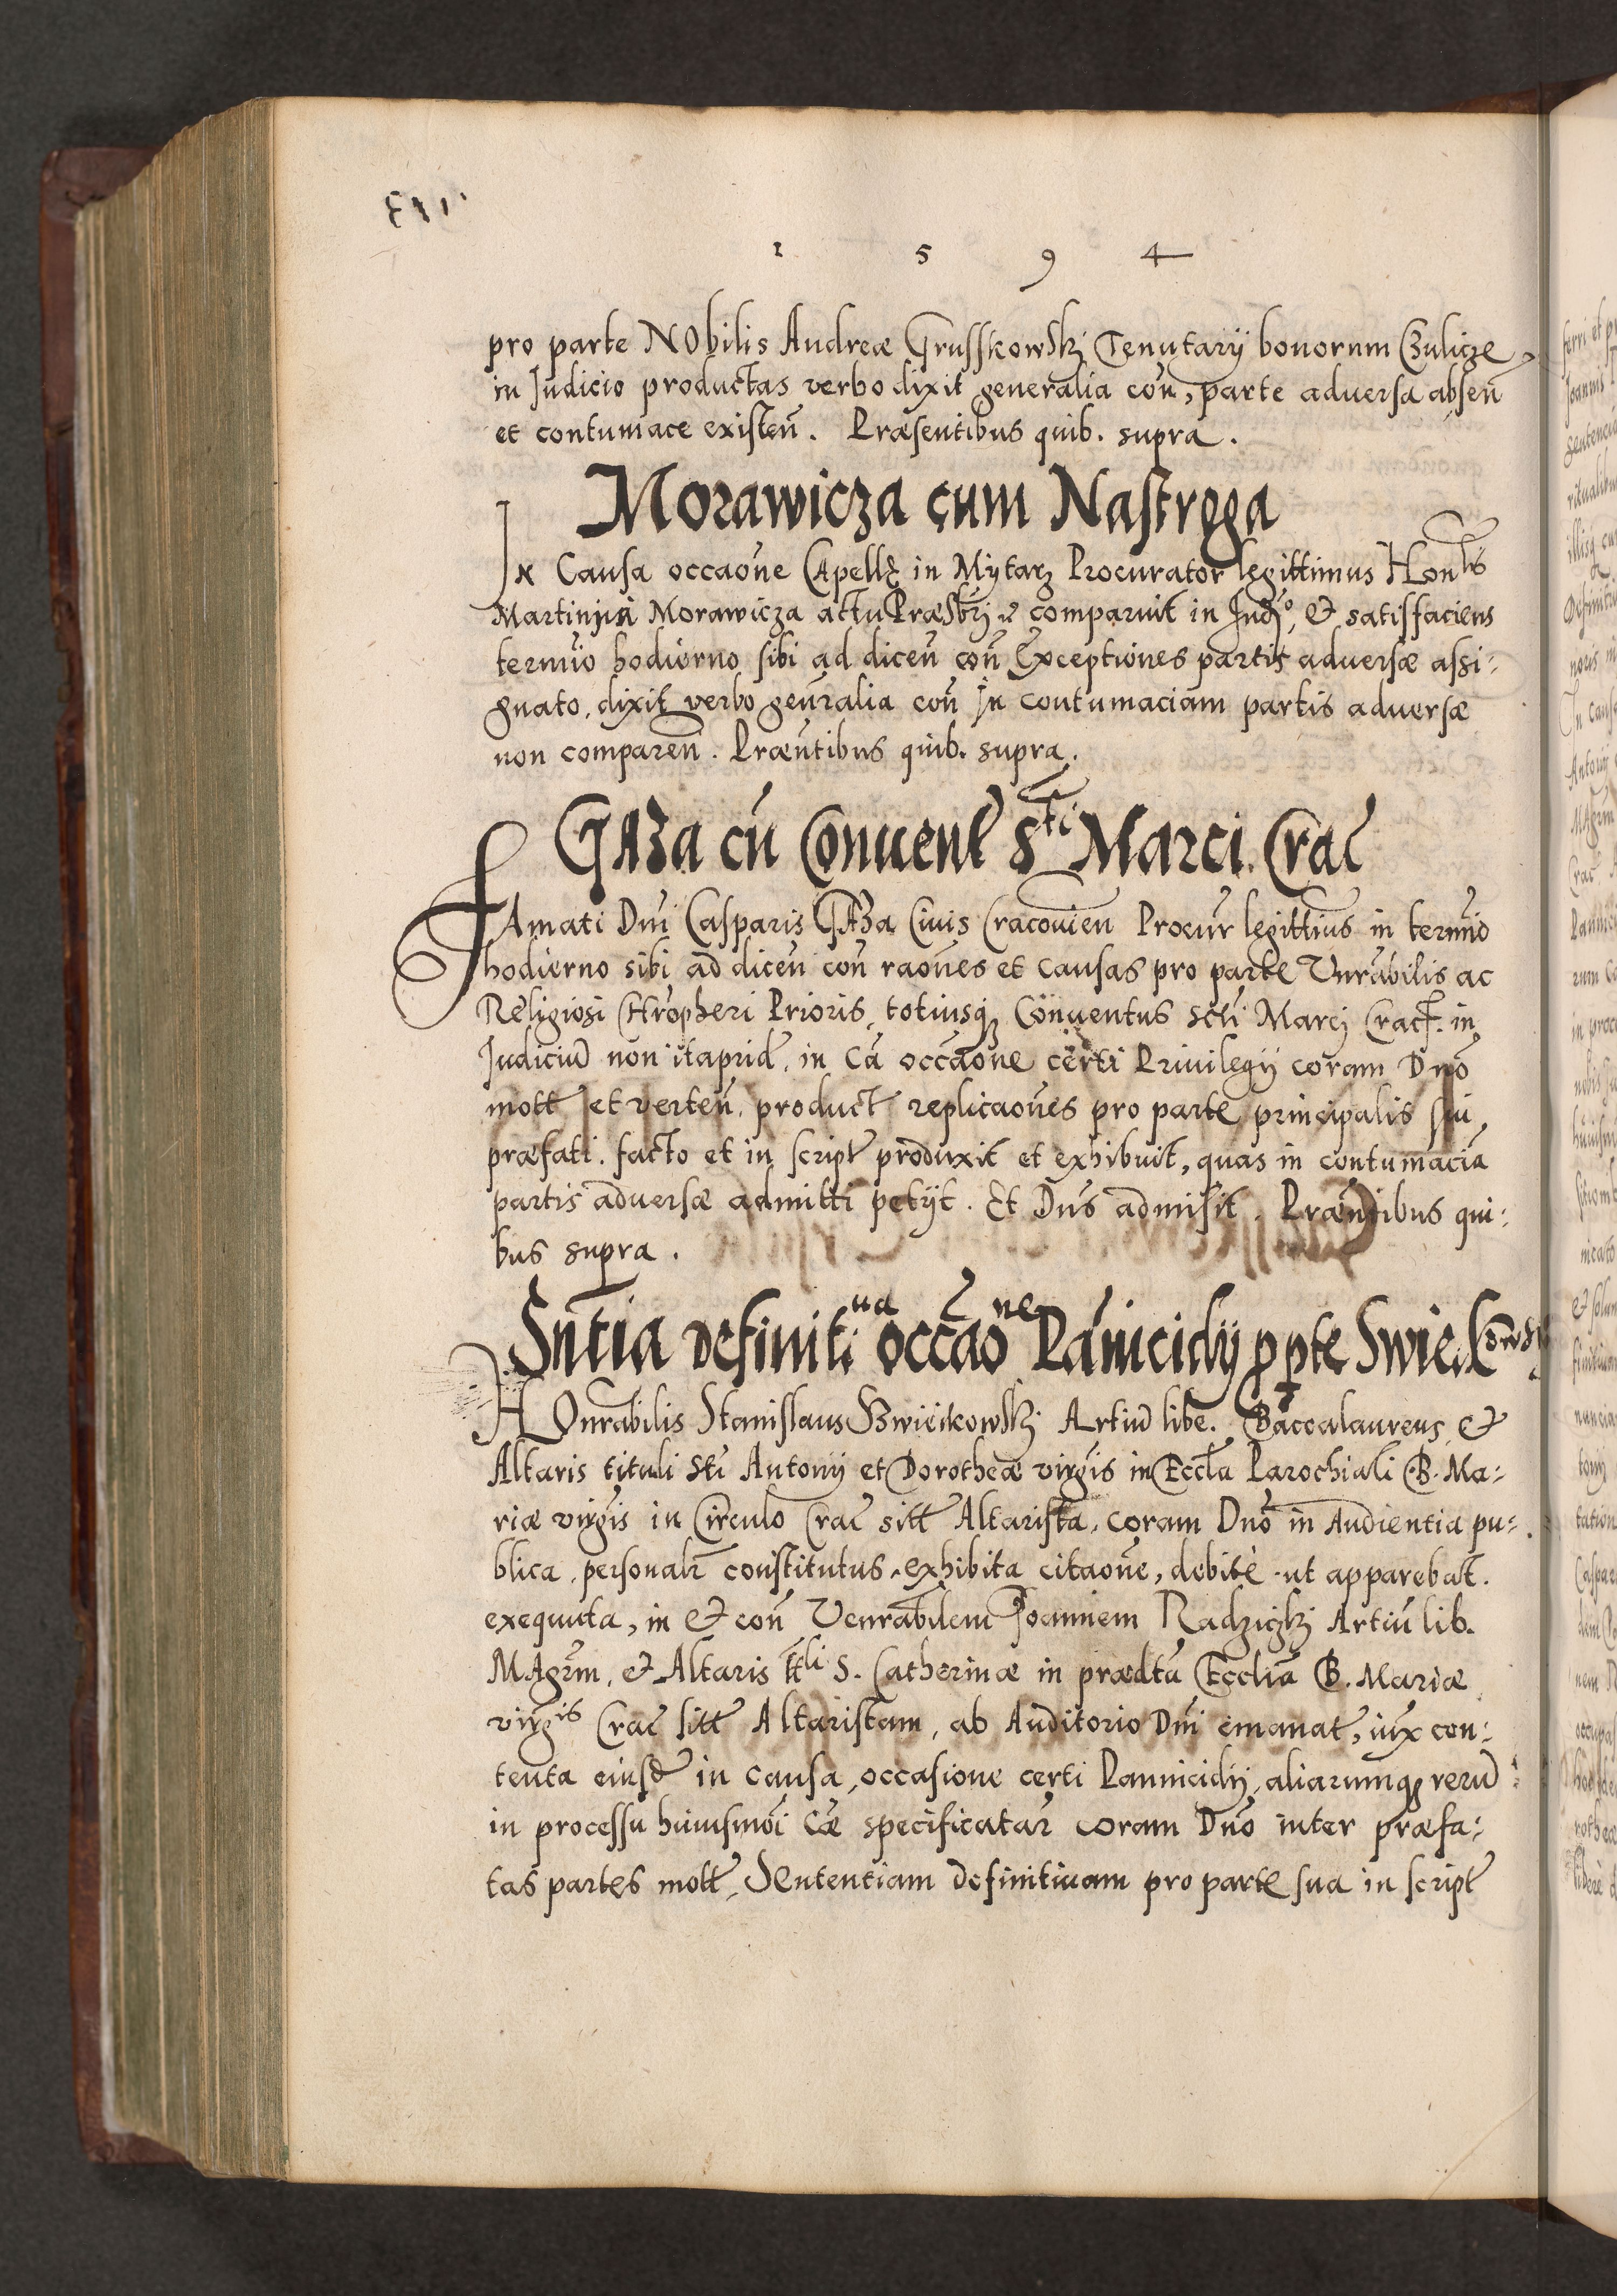 1 5 9 4
pro parte NObilis Andreæ Grusskowskj Tenutarij bonorum Czulicze
in Judicio productas verbo dixit generalia coñ, parte aduersa abseñ
et contumace existeñ. Præsentibus quib. supra.
Morawicza cum Nastręga
In Causa occaõne CApellę in Mÿtarz Procurator legittimus Honlis
Martini Morawicza actu Præsbrj comparuit in Judº, et satisfaciens
termĩo hodierno sibi ad diceñ coñ Exceptiones partis aduersæ assi:
gnato, dixit verbo geñralia coñ In contumaciam partis aduersæ
non compareñ. Præñtibus quib. supra.
GAza cũ Conuent Sti Marci. Crac
FAmati Dñi Casparis GAza Ciuis Cracouieñ Procur legittĩus in termĩo
hodierno sibi ad diceñ coñ raoñes et causas pro parte Vnrabilis ac
Religiosi Chrõpheri Prioris, totiusq Conuentus Scti Marcj Crac. in
Judiciũ non itaprid, in Cã occaõne certi Priuilegij coram Dnõ
mott et verteñ, product replicaoñes pro parte principalis sui
præfati. facto et in script produxit et exhibuit, quas in contumaciã
partis aduersæ admitti petijt. Et Dñs admisit. Præñtibus qui:
bus supra.
Sñtia definitiua occaõne Pañicidij p pte Swieskowsk
HOnrabilis Stanislaus Swieikowskj Artiũ libe. Baccalaureus et
Altaris tituli Sti Antonij et Dorotheæ virgis in Eccla Parochiali B. Ma:
riæ virgis in Circulo Crac sitt Altarista, coram Dnõ in Audientia pu:
blica, personalr constitutus, exhibita citaoñe, debitè ut apparebat.
exequuta, in et coñ Venrabilem Joannem Radzickj Artiũ lib.
MAgrm, et Altaris ttli S. Catherinæ in prædta Ecclia B. Mariæ
virgis Crac sitt Altaristam, ab Auditorio Dñi emanat, iux con:
tenta eiusd in causa, occasione certi Pannicidij, aliarumq rerũ
in processu huiusmõi Cæ specificatar coram Dnõ inter præfa:
tas partes mott, SEntentiam definitiuam pro parte sua in script